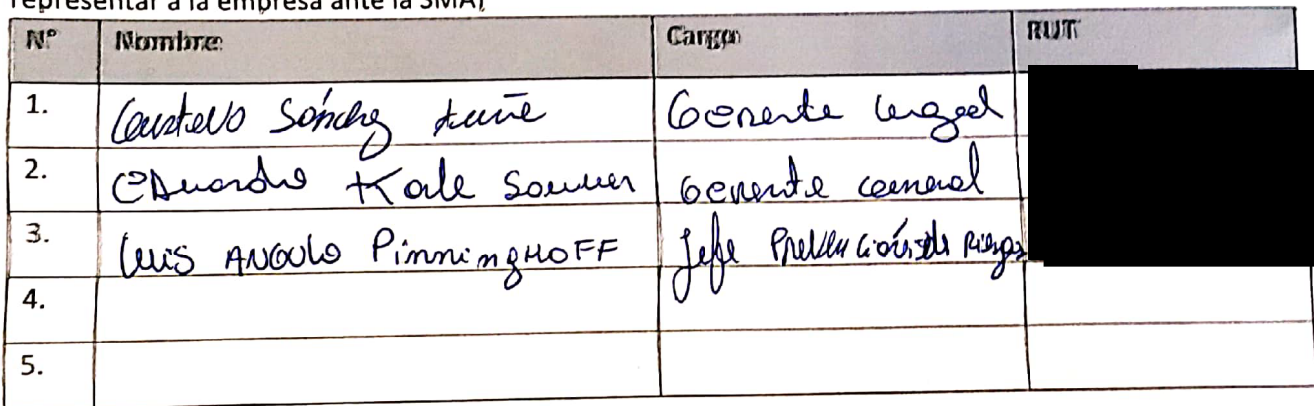 representar a la empresa ante la SMA)
N° Nombre Cargo RUT
1. Gustavo Sánchez Gerente Legal
2. Eduardo Gerente General
3. Luis ANGULO PinningHOFF Jefe Prevención de Riesgos
4.
5.